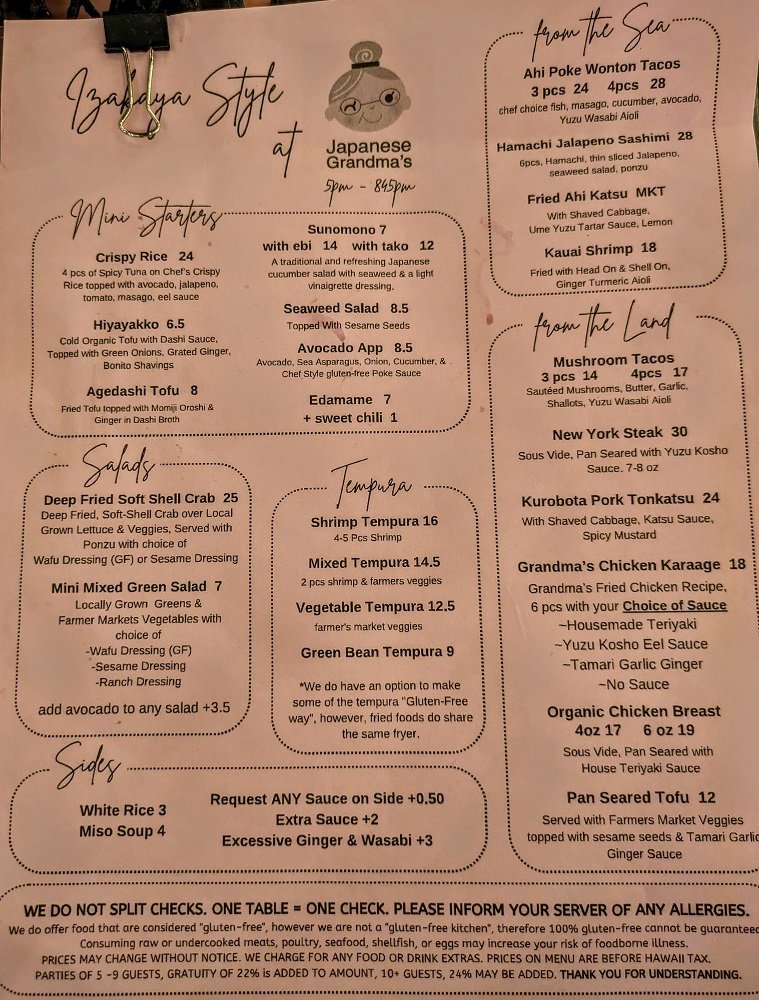 Izakaya Style
at
Japanese
Grandma's
5pm - 845pm
Mini Starters
Crispy Rice 24
4 pcs of Spicy Tuna on Chef's Crispy
Rice topped with avocado, jalapeno,
tomato, masago, eel sauce
Hiyayakko 6.5
Cold Organic Tofu with Dashi Sauce,
Topped with Green Onions, Grated Ginger,
Bonito Shavings
Agedashi Tofu 8
Fried Tofu topped with Momiji Oroshi &
Ginger in Dashi Broth
Sunomono 7
with ebi 14 with tako 12
A traditional and refreshing Japanese
cucumber salad with seaweed & a light
vinaigrette dressing.
Seaweed Salad 8.5
Topped With Sesame Seeds
Avocado App 8.5
Avocado, Sea Asparagus, Onion, Cucumber, &
Chef Style gluten-free Poke Sauce
Edamame 7
+ sweet chili 1
Salads
Deep Fried Soft Shell Crab 25
Deep Fried, Soft-Shell Crab over Local
Grown Lettuce & Veggies, Served with
Ponzu with choice of
Wafu Dressing (GF) or Sesame Dressing
Mini Mixed Green Salad 7
Locally Grown Greens &
Farmer Markets Vegetables with
choice of
-Wafu Dressing (GF)
-Sesame Dressing
-Ranch Dressing
add avocado to any salad +3.5
Tempura
Shrimp Tempura 16
4-5 Pcs Shrimp
Mixed Tempura 14.5
2 pcs shrimp & farmers veggies
Vegetable Tempura 12.5
farmer's market veggies
Green Bean Tempura 9
*We do have an option to make
some of the tempura "Gluten-Free
way", however, fried foods do share
the same fryer.
Sides
White Rice 3
Miso Soup 4
Request ANY Sauce on Side +0.50
Extra Sauce +2
Excessive Ginger & Wasabi +3
from the Sea
Ahi Poke Wonton Tacos
3 pcs 24 4pcs 28
chef choice fish, masago, cucumber, avocado,
Yuzu Wasabi Aioli
Hamachi Jalapeno Sashimi 28
6pcs, Hamachi, thin sliced Jalapeno,
seaweed salad, ponzu
Fried Ahi Katsu MKT
With Shaved Cabbage,
Ume Yuzu Tartar Sauce, Lemon
Kauai Shrimp 18
Fried with Head On & Shell On,
Ginger Turmeric Aioli
from the Land
Mushroom Tacos
3 pcs 14 4pcs 17
Sautéed Mushrooms, Butter, Garlic,
Shallots, Yuzu Wasabi Aioli
New York Steak 30
Sous Vide, Pan Seared with Yuzu Kosho
Sauce. 7-8 oz
Kurobota Pork Tonkatsu 24
With Shaved Cabbage, Katsu Sauce,
Spicy Mustard
Grandma's Chicken Karaage 18
Grandma's Fried Chicken Recipe,
6 pcs with your Choice of Sauce
~Housemade Teriyaki
~Yuzu Kosho Eel Sauce
~Tamari Garlic Ginger
~No Sauce
Organic Chicken Breast
4oz 17 6 oz 19
Sous Vide, Pan Seared with
House Teriyaki Sauce
Pan Seared Tofu 12
Served with Farmers Market Veggies
topped with sesame seeds & Tamari Garlic
Ginger Sauce
WE DO NOT SPLIT CHECKS. ONE TABLE = ONE CHECK. PLEASE INFORM YOUR SERVER OF ANY ALLERGIES.
We do offer food that are considered "gluten-free", however we are not a "gluten-free kitchen", therefore 100% gluten-free cannot be guaranteed
Consuming raw or undercooked meats, poultry, seafood, shellfish, or eggs may increase your risk of foodborne illness.
PRICES MAY CHANGE WITHOUT NOTICE. WE CHARGE FOR ANY FOOD OR DRINK EXTRAS. PRICES ON MENU ARE BEFORE HAWAII TAX.
PARTIES OF 5 -9 GUESTS, GRATUITY OF 22% is ADDED TO AMOUNT, 10+ GUESTS, 24% MAY BE ADDED. THANK YOU FOR UNDERSTANDING.